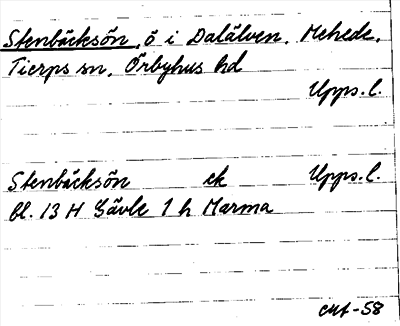 Stenbäcksön, ö i Dalälven. Mehede.
Tierps sn, Örbyhus hd
Upps. l.
Stenbäcksön ek Upps. l.
bl. 13 H Gävle 1 h Marma
-58